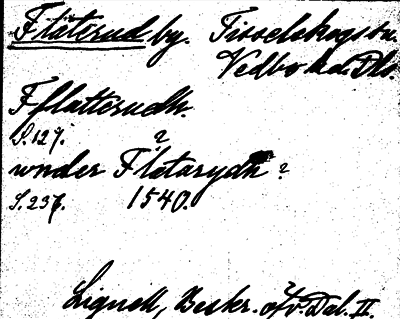 Fläterud by. Tisselskogs sn.
Vedbo hd. Dls.
Fflatterudh.
S. 127.
wnder Fletarydh ?
?
S. 237. 1540.
Lignell, Beskr. öfv. Dal. II.